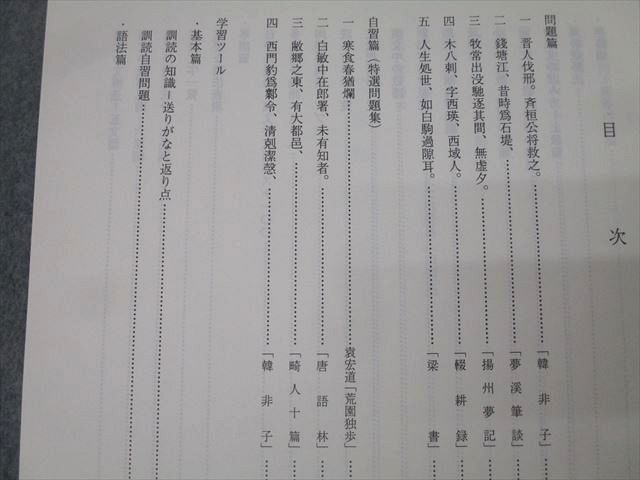 目次
問題篇
一 晋人伐邢。斉桓公将救之。……「韓非子」
二 錢塘江、昔時爲石堤、……「夢溪筆談」
三 牧常出没馳逐其間、無虚夕。……「揚州夢記」
四 木八剌、字西瑛、西域人。……「輟耕録」
五 人生処世、如白駒過隙耳。……「梁書」
自習篇（特選問題集）
一 寒食春猶爛……袁宏道「荒園独歩」
二 白敏中在郎署、未有知者。……「唐語林」
三 敝郷之東、有大都邑、……「畸人十篇」
四 西門豹爲鄴令、清剋潔愨、……「韓非子」
学習ツール
・基本篇
訓読の知識－送りがなと返り点……
訓読自習問題……
・語法篇